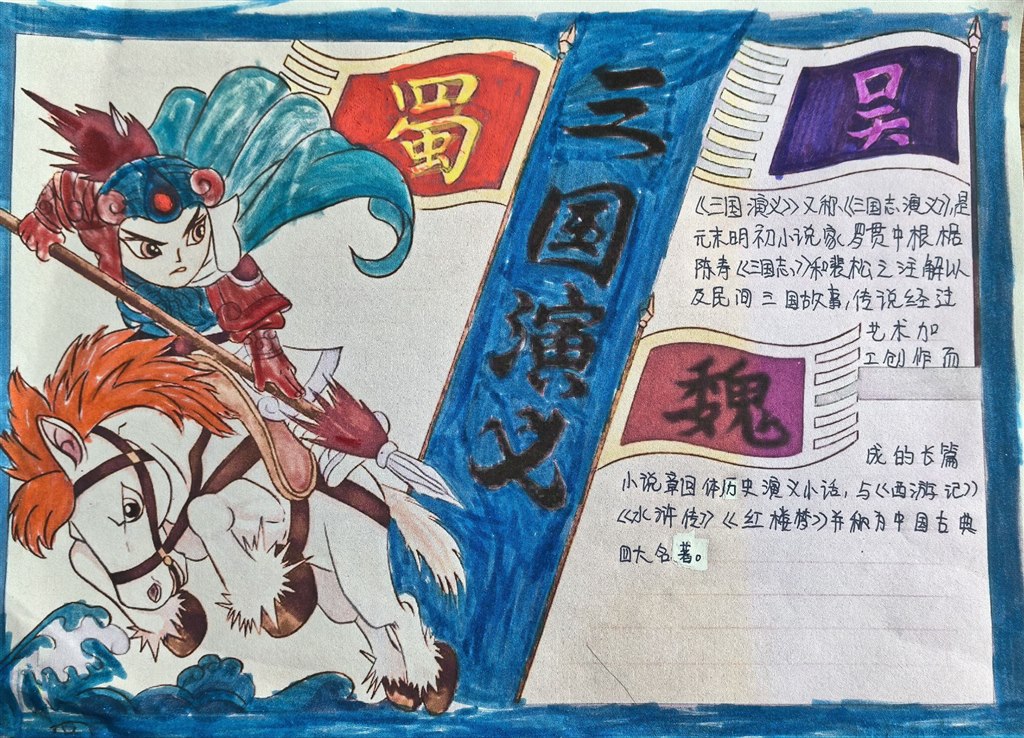 蜀
三国演义
吴
《三国演义》又称《三国志演义》,是
元末明初小说家罗贯中根据
陈寿《三国志》和裴松之注解以
及民间三国故事,传说经过
艺术加
工创作而
魏
成的长篇
小说章回体历史演义小话,与《西游记》
《水浒传》《红楼梦》并称为中国古典
四大名著。